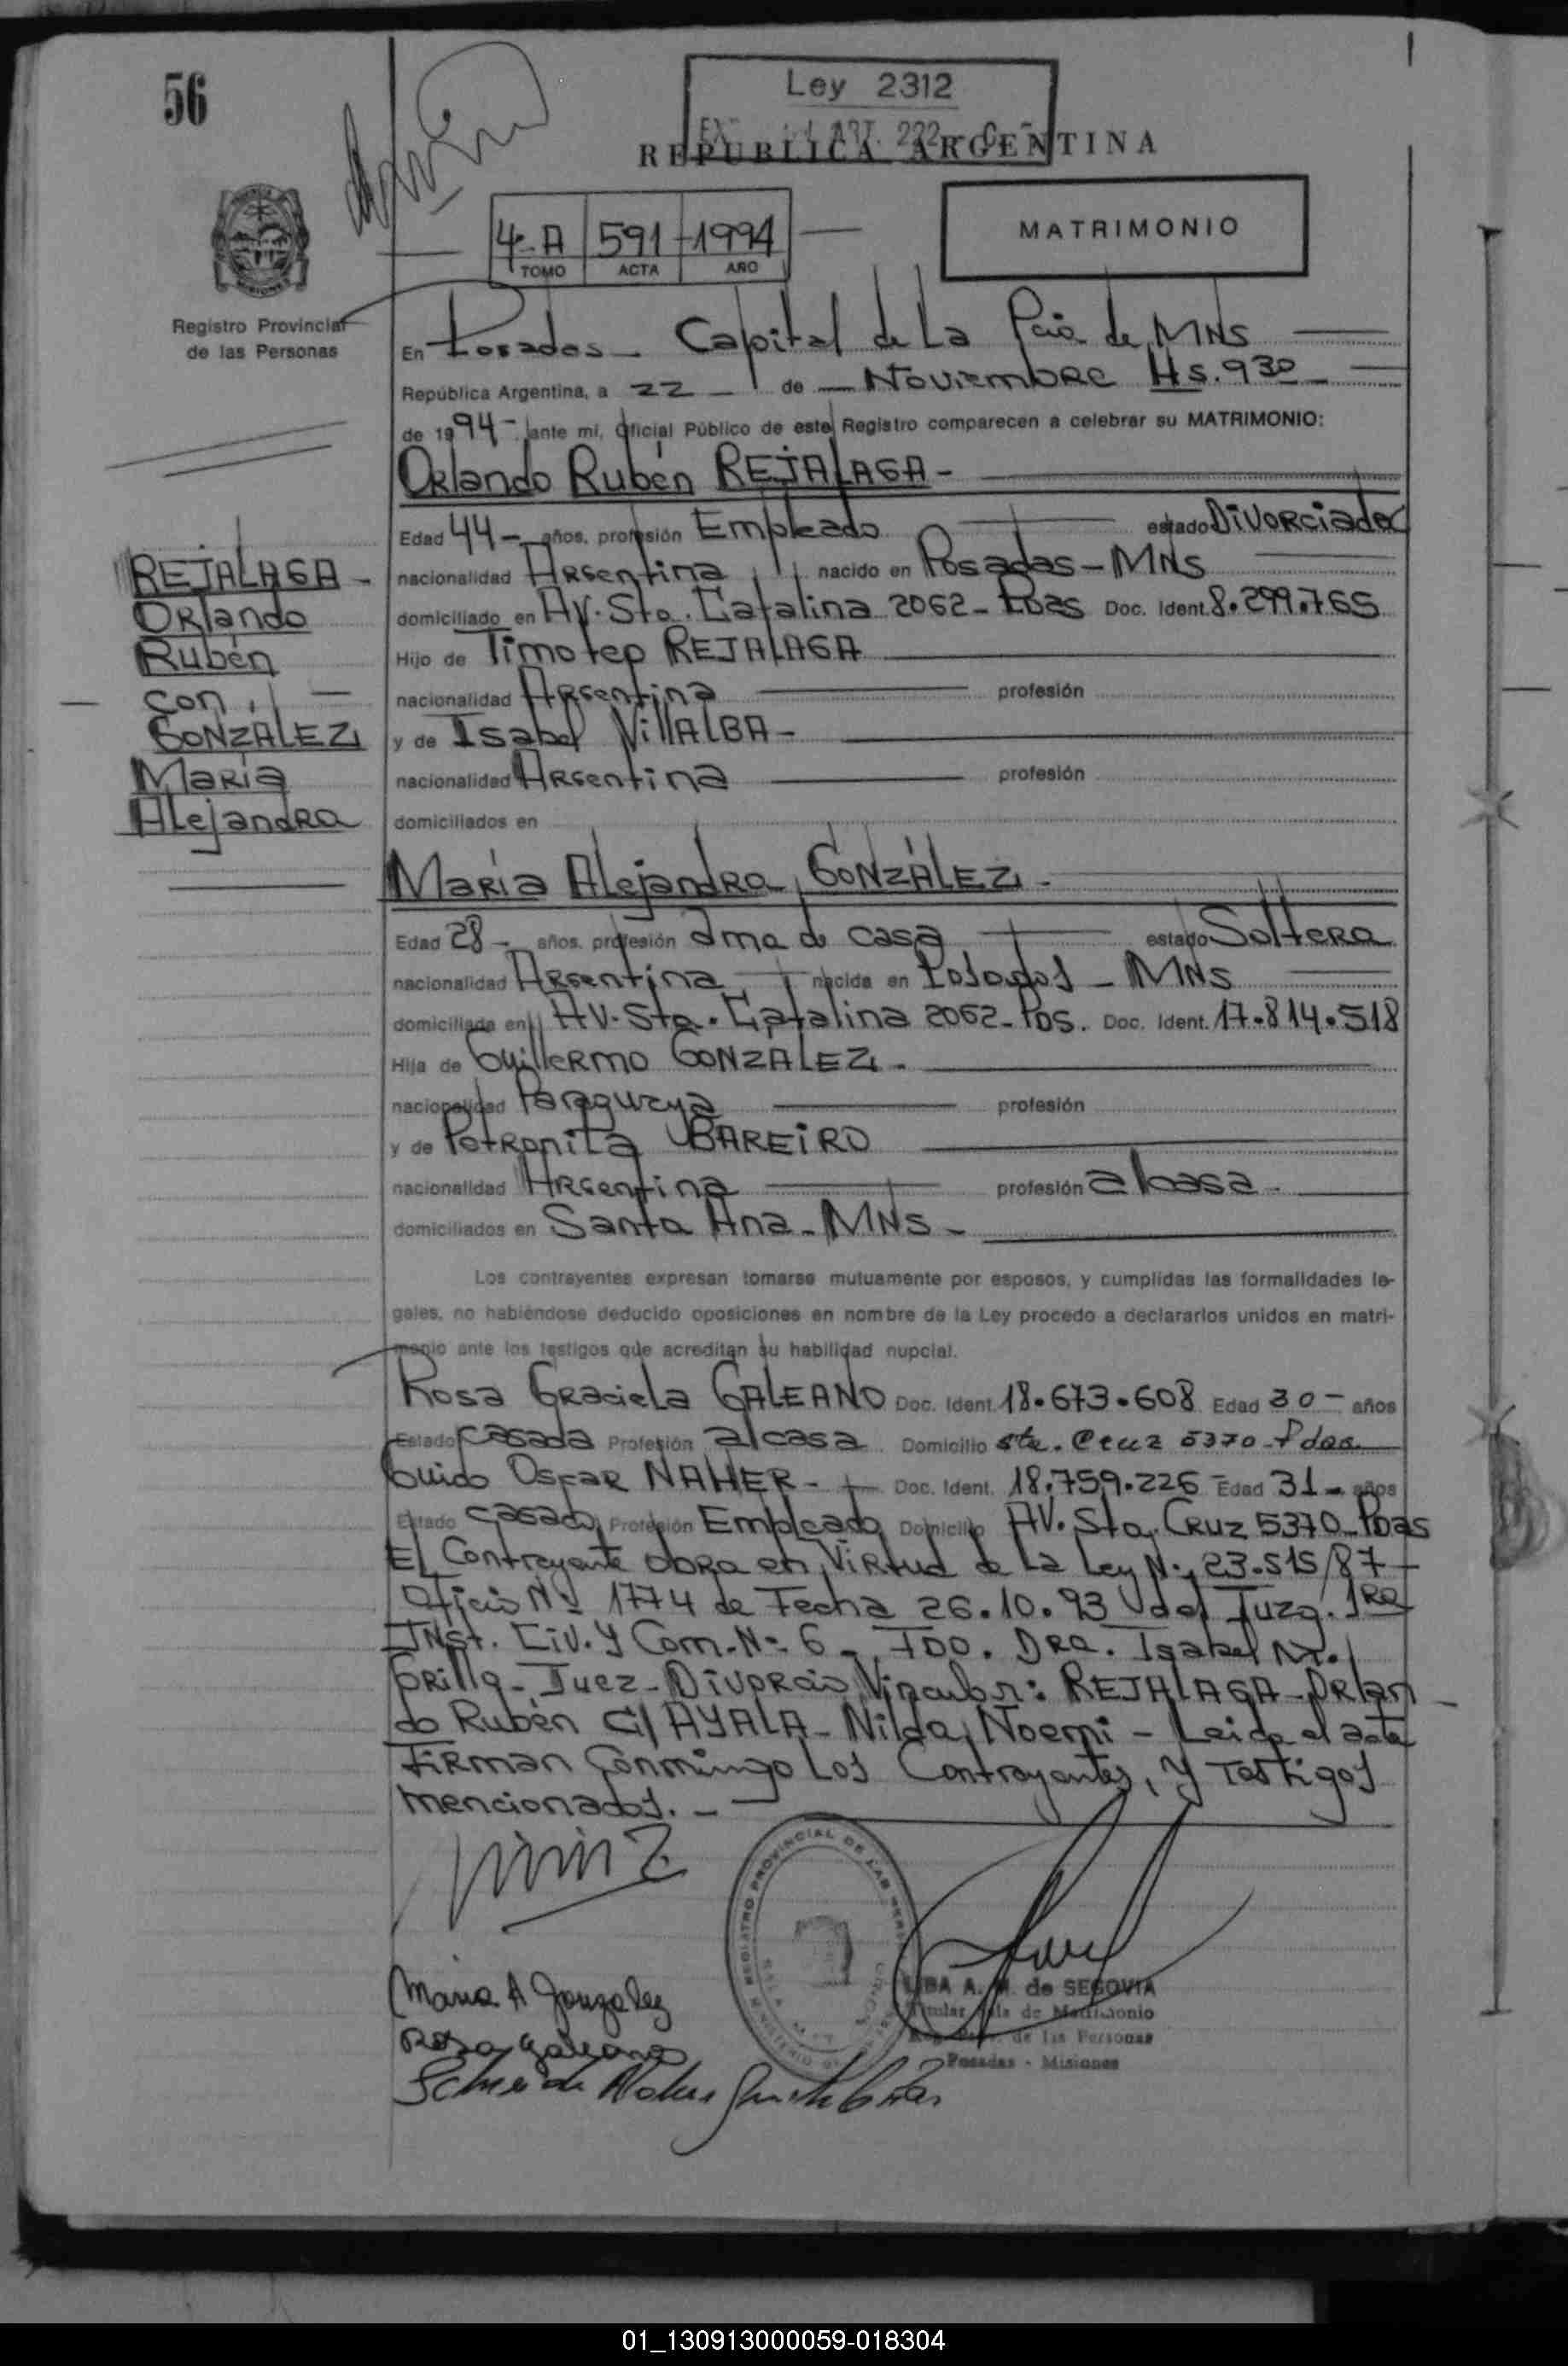 56
Ley 2312
REPUBLICA ARGENTINA
MATRIMONIO
4-A 591 1994
TOMO ACTA AÑO
Registro Provincial
de las Personas
En Posadas - Capital de La Pcia de MNS
República Argentina, a 22 - de - Noviembre Hs. 930 -
de 1994 - ante mí, Oficial Público de este Registro comparecen a celebrar su MATRIMONIO:
Orlando Rubén REJALAGA -
Edad 44 - años, profesión Empleado estado Divorciado
nacionalidad Argentina nacido en Posadas - MNS
domiciliado en AV. Sta. Catalina 2062 - Pdas Doc. Ident. 8.299.765
Hijo de Timoteo REJALAGA
nacionalidad Argentina profesión
y de Isabel VillALBA -
nacionalidad Argentina profesión
domiciliados en
REJALAGA -
Orlando
Rubén
con
GONZÁLEZ
María
Alejandra
María Alejandra GONZÁLEZ -
Edad 28 - años, profesión ama de casa estado Soltera
nacionalidad Argentina nacida en Posadas - MNS
domiciliada en AV. Sta. Catalina 2062 - Pds. Doc. Ident. 17.814.518
Hija de Guillermo GONZALEZ -
nacionalidad Paraguaya profesión
y de Petronila BAREIRO
nacionalidad Argentina profesión alcasa -
domiciliados en Santa Ana - MNS -
Los contrayentes expresan tomarse mutuamente por esposos, y cumplidas las formalidades le-
gales, no habiéndose deducido oposiciones en nombre de la Ley procedo a declararlos unidos en matri-
monio ante los testigos que acreditan su habilidad nupcial.
Rosa Graciela GALEANO Doc. Ident. 18.673.608 Edad 30 - años
Estado casada Profesión alcasa Domicilio sta. Cruz 5370 - Pdas.
Guido Oscar NAHER - Doc. Ident. 18.759.226 - Edad 31 - años
Estado casado Profesión Empleado Domicilio AV. Sta. Cruz 5370 - Pdas
El Contrayente obra en Virtud de La Ley Nº 23.515/87 -
Oficio Nº 1774 de Fecha 26.10.93 del Juzg. 1RA
Inst. Civ. y Com. Nº 6 - FDO. Dra. Isabel M.
Grilla - Juez - Divorcio Vincular: REJALAGA - Orlan
do Rubén C/ AYALA - Nilda Noemi - Leida el acta
Firman Conmingo Los Contrayentes, y Testigos
mencionados. -
REGISTRO PROVINCIAL DE LAS
Maria A Gonzalez
Rosa Galeano
A. M. de SEGOVIA
Titular de Matrimonio
de las Personas
Posadas - Misiones
01_130913000059-018304